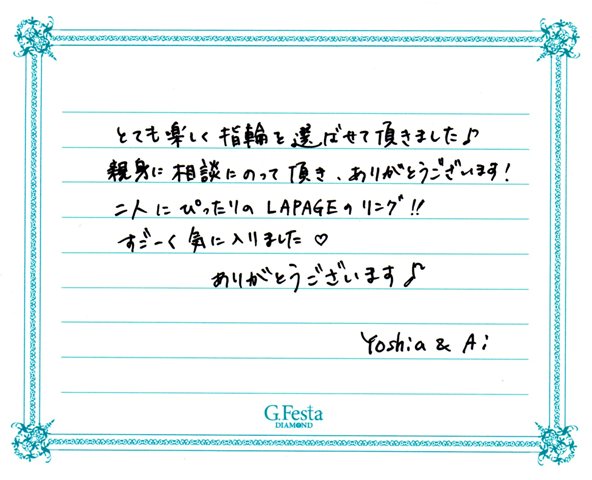 とても楽しく指輪を選ばせて頂きました♪
親身に相談にのって頂き、ありがとうございます!
二人にぴったりのLAPAGEのリング!!
すごーく気に入りました♡
ありがとうございます♪
Yoshia & Ai
G.Festa
DIAMOND